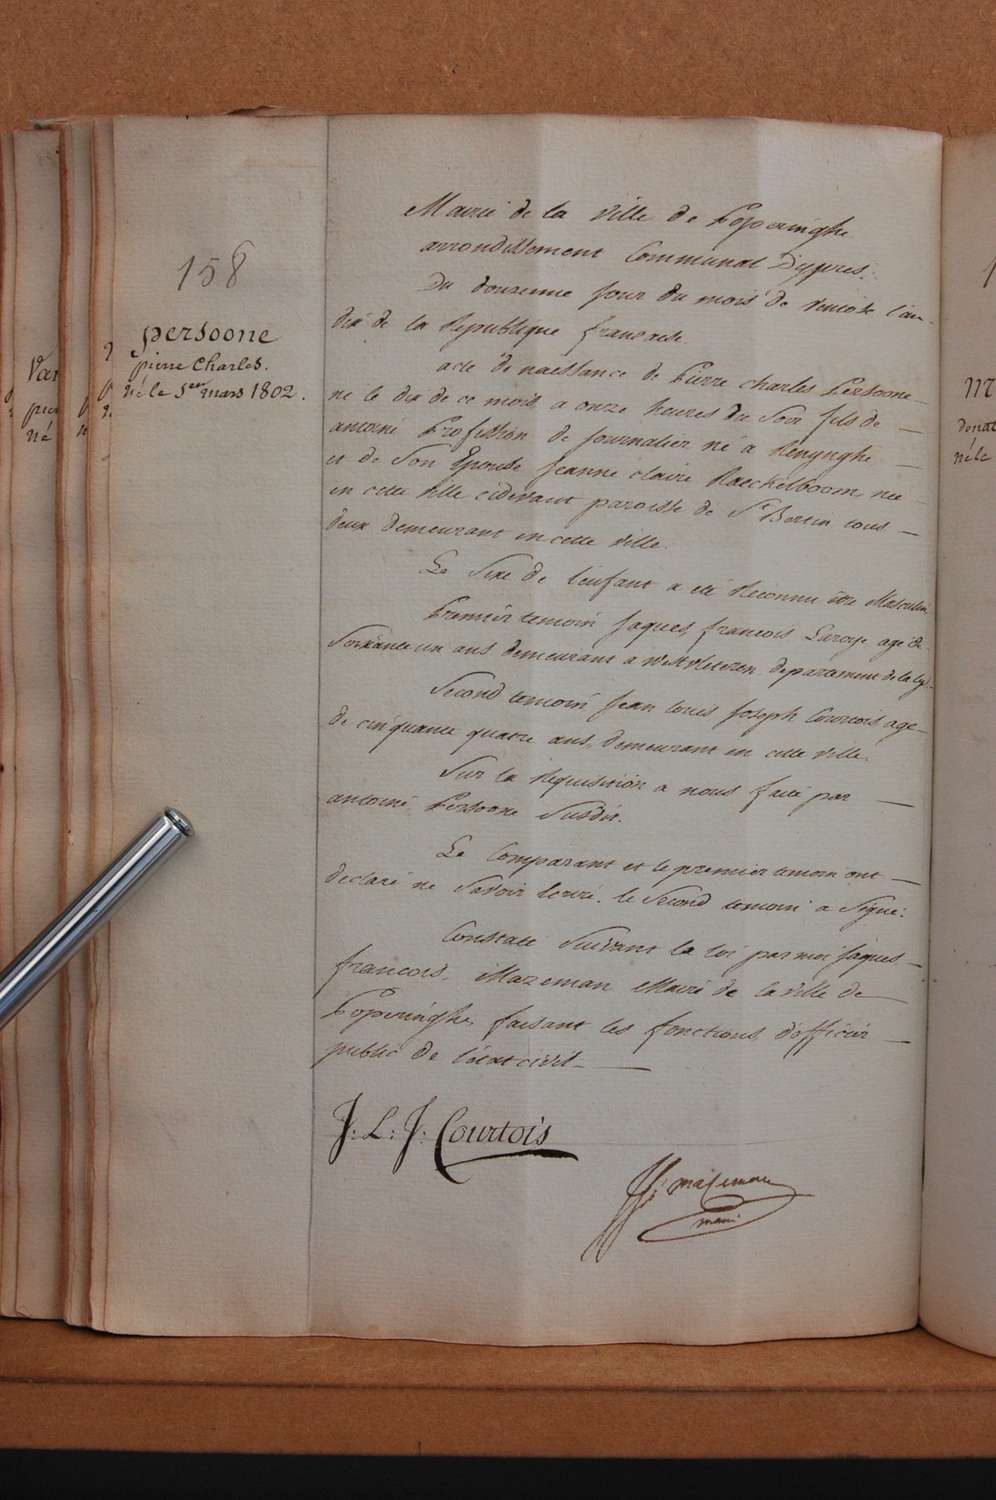 158
persoone
pierre Charles.
né le 1er mars 1802.
Mairie de la ville de Poperinghe
arrondissement Communal Dypres.
Du douzieme jour du mois de ventose l'an
dix de la Republique francaise.
acte de naissance de Pierre charles Persoone
né le dix de ce mois a onze heures du Soir fils de
antoine Profession de Journalier né a Renynghe
et de Son Epouse Jeanne claire Raeckelboom, née
en cette ville cidevant paroisse de St Bertin tous
deux demeurant en cette ville.
Le Sexe de l'enfant a été Reconnu être Masculin
Premier temoin Jaques francois Laroye age de
Soixante un ans demeurant a westvleteren departement de la Lys
Second temoin Jean louis Joseph Courtois age
de cinquante quatre ans, demeurant en cette ville.
Sur la Requisition a nous faite par
antoine Persoone Susdit.
Le Comparant et le premier temoin ont
declaré ne Savoir Ecrire. le Second temoin a Signé:
Constaté Suivant la loi par moi Jaques
francois Mazeman Maire de la ville de
Poperinghe, faisant les fonctions d'officier
public de l'état civil
J: L: J: Courtois
JF: Mazeman
maire
Var
pier
né
M
Donat
né le